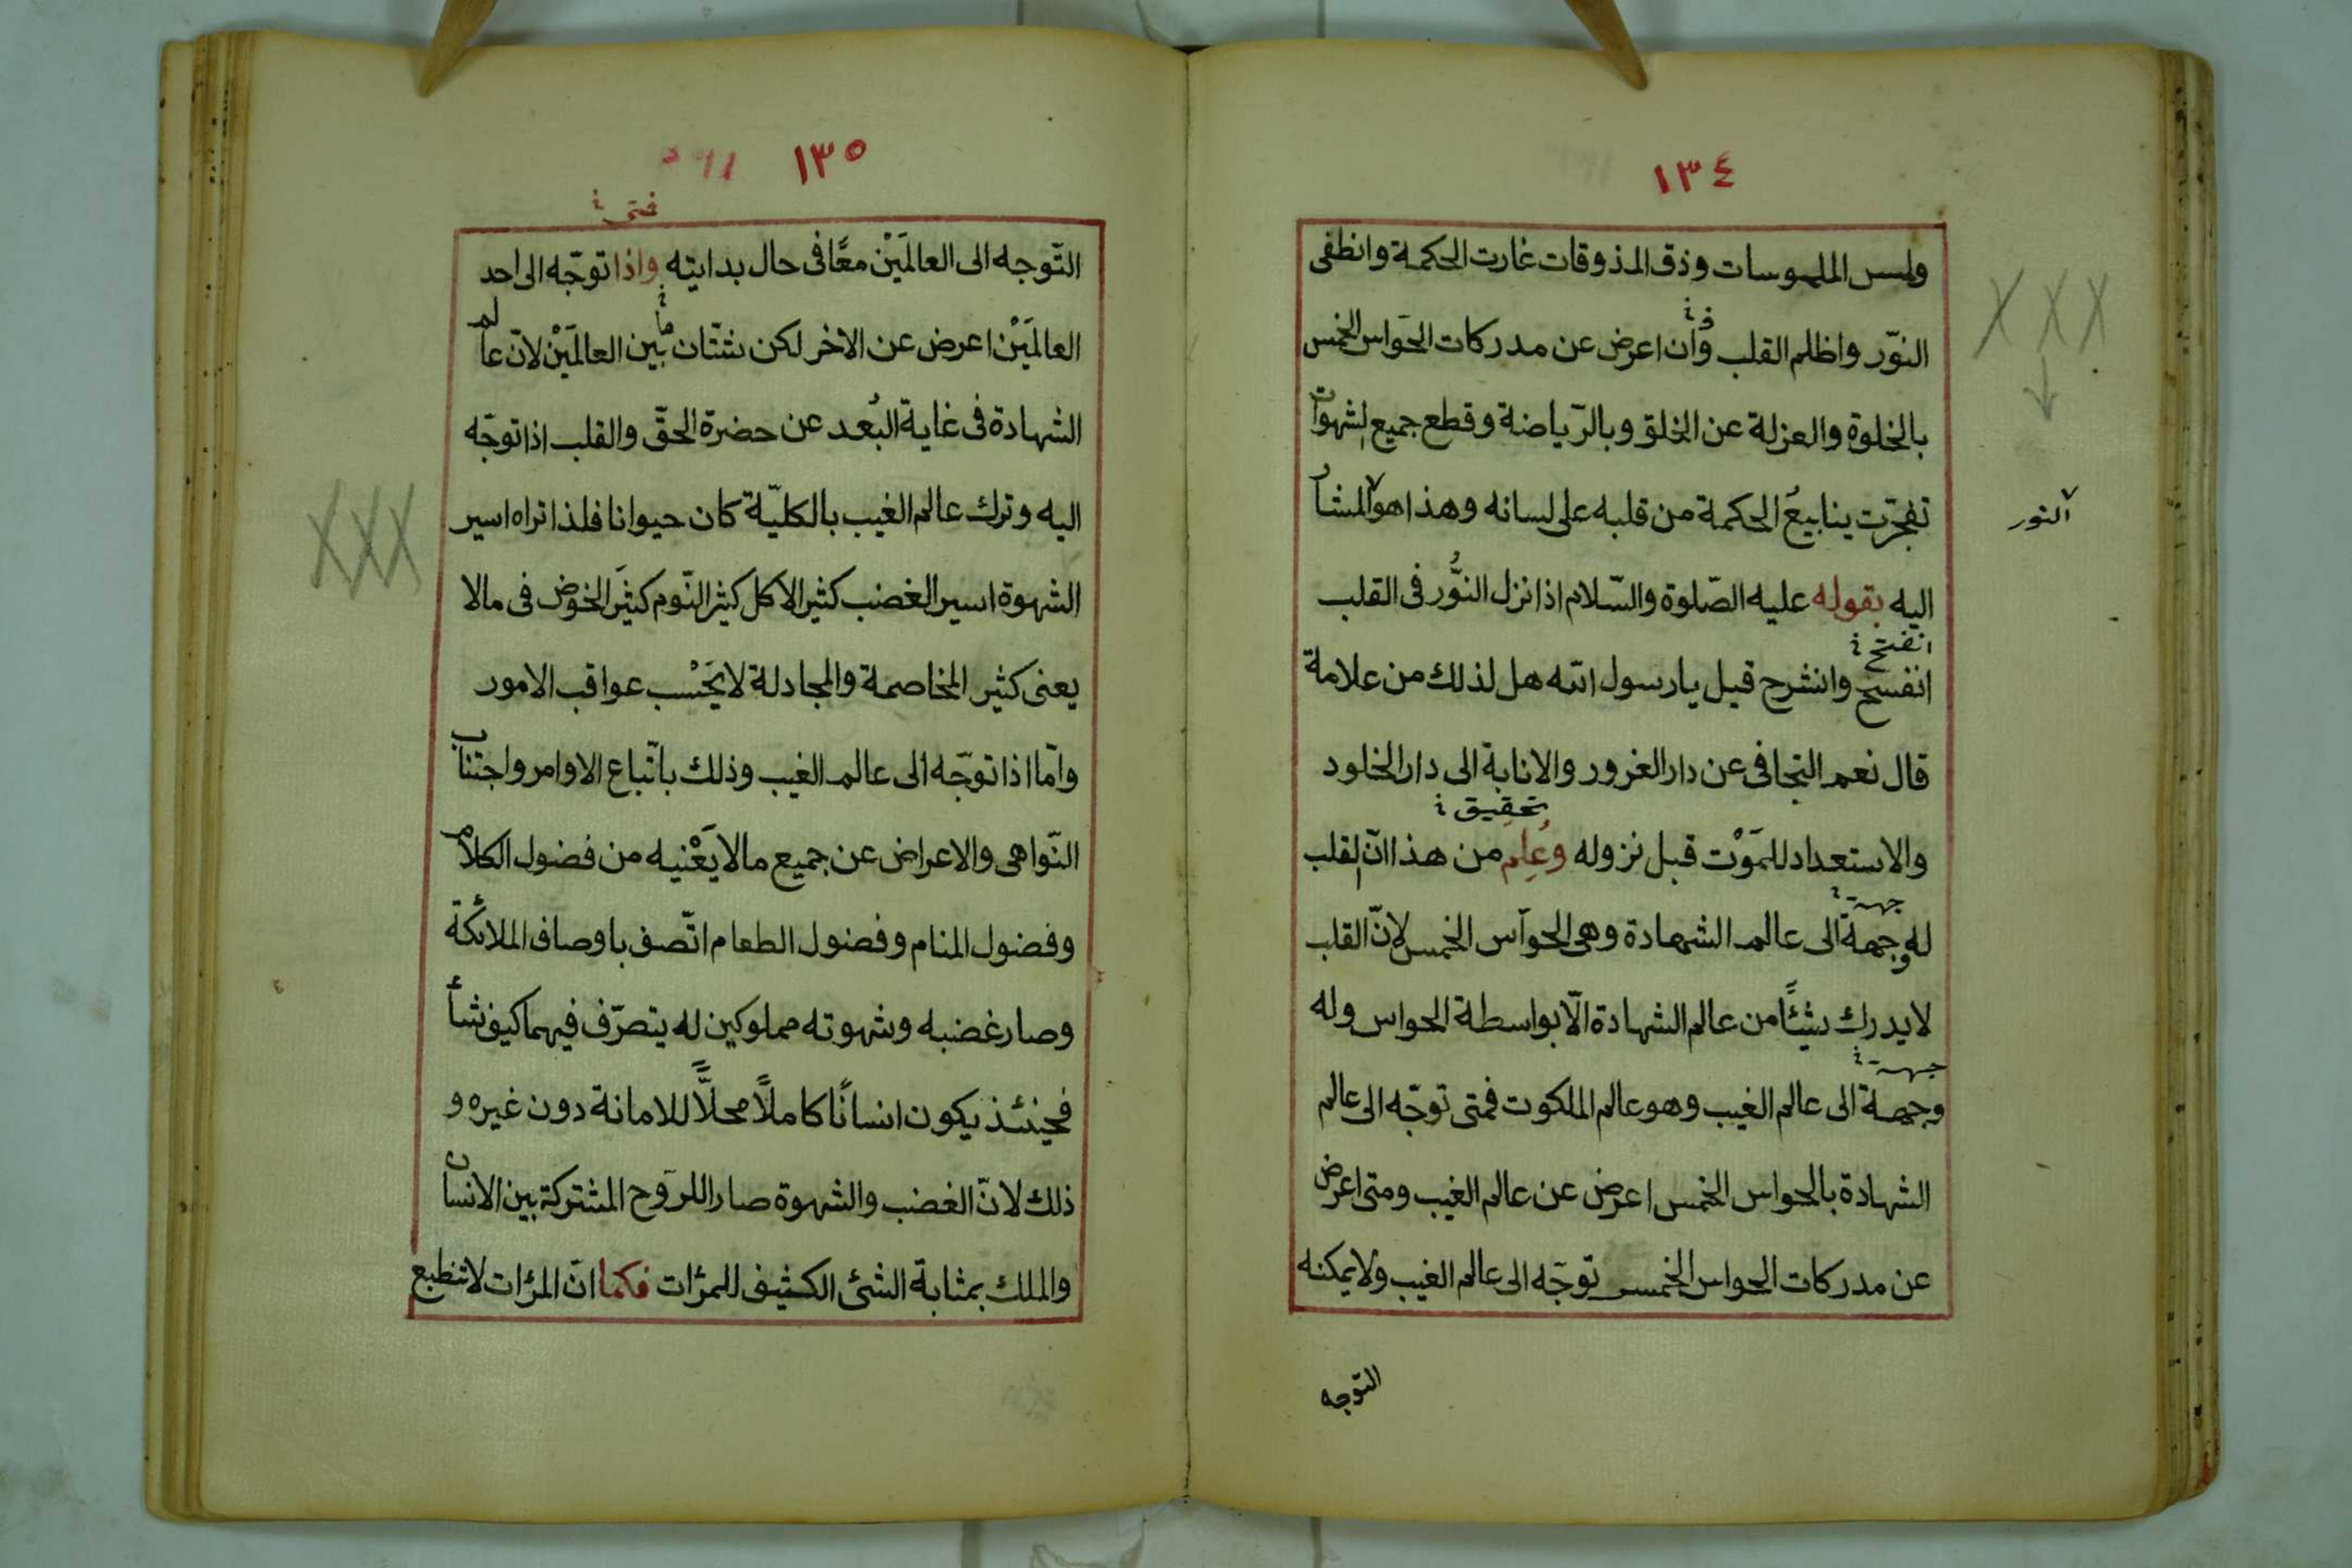 ١٣٤
ولمس الملموسات وذق المذوقات غارت الحكمة وانطفى
النّور واظلم القلب وان اعرض عن مدركات الحواس الخمس
بالخلوة والعزلة عن الخلق وبالرّياضة وقطع جميع الشهوات
تفجّرت ينابيعُ الحكمة من قلبه على لسانه وهذا هو المشار
النور
اليه بقوله عليه الصّلوة والسّلام اذا نزل النُّور فى القلب
انفتح
انفسح وانشرح قيل يا رسول الله هل لذلك من علامة
قال نعم التجافى عن دار الغرور والانابة الى دار الخلود
تحقيق
والاستعداد للمَوْت قبل نزوله وعُلِم من هذا انّ القلب
جهة
له وجهة الى عالم الشهادة وهى الحوآس الخمس لانّ القلب
لا يدرك شيئًا من عالم الشهادة الّا بواسطة الحواس وله
جهة
وجهة الى عالم الغيب وهو عالم الملكوت فمتى توجّه الى عالم
الشهادة بالحواس الخمس اعرض عن عالم الغيب ومتى اعرض
عن مدركات الحواس الخمس توجّه الى عالم الغيب ولا يمكنه
التوجه
١٣٥
فمتى
التّوجه الى العالمَيْن معًا فى حال بدايته واذا توجّه الى احد
العالمَيْن اعرض عن الاخر لكن شتّان ما بين العالمَيْن لانّ عالم
الشهادة فى غاية البُعد عن حضرة الحقّ والقلب اذا توجّه
اليه وترك عالم الغيب بالكليّة كان حيوانا فلذا تراه اسير
الشهوة اسير الغضب كثير الاكل كثير النّوم كثيَر الخوض فى مالا
يعنى كثير المخاصمة والمجادلة لا يَحْسب عواقب الامور
وامّا اذا توجّه الى عالم الغيب وذلك باتّباع الاوامر واجتناب
النّواهى والاعراض عن جميع مالا يَعْنيه من فضول الكلام
وفضول المنام وفضول الطعام اتّصف باوصاف الملائكة
وصار غضبه وشهوته مملوكين له يتصرّف فيهما كيف شأ
فحينئذ يكون انسانًا كاملًا محلًّا للامانة دون غيره و
ذلك لانّ الغضب والشهوة صارا للروح المشتركة بين الانسان
والملك بمثابة الشئ الكثيف للمرٔات فكما انّ المرٔات لا تنطبع